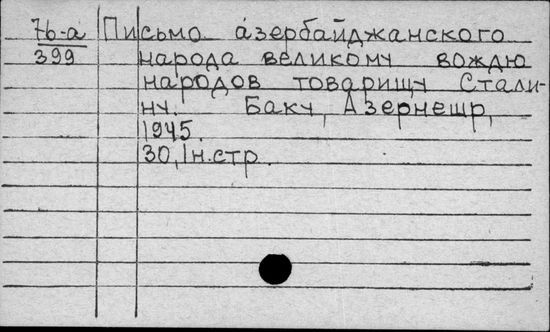 76-а Письмо азербайджанского
399 народа великому вождю
народов товарищу Стали-
ну. Баку, Азернешр,
1945.
30, 1н.стр.